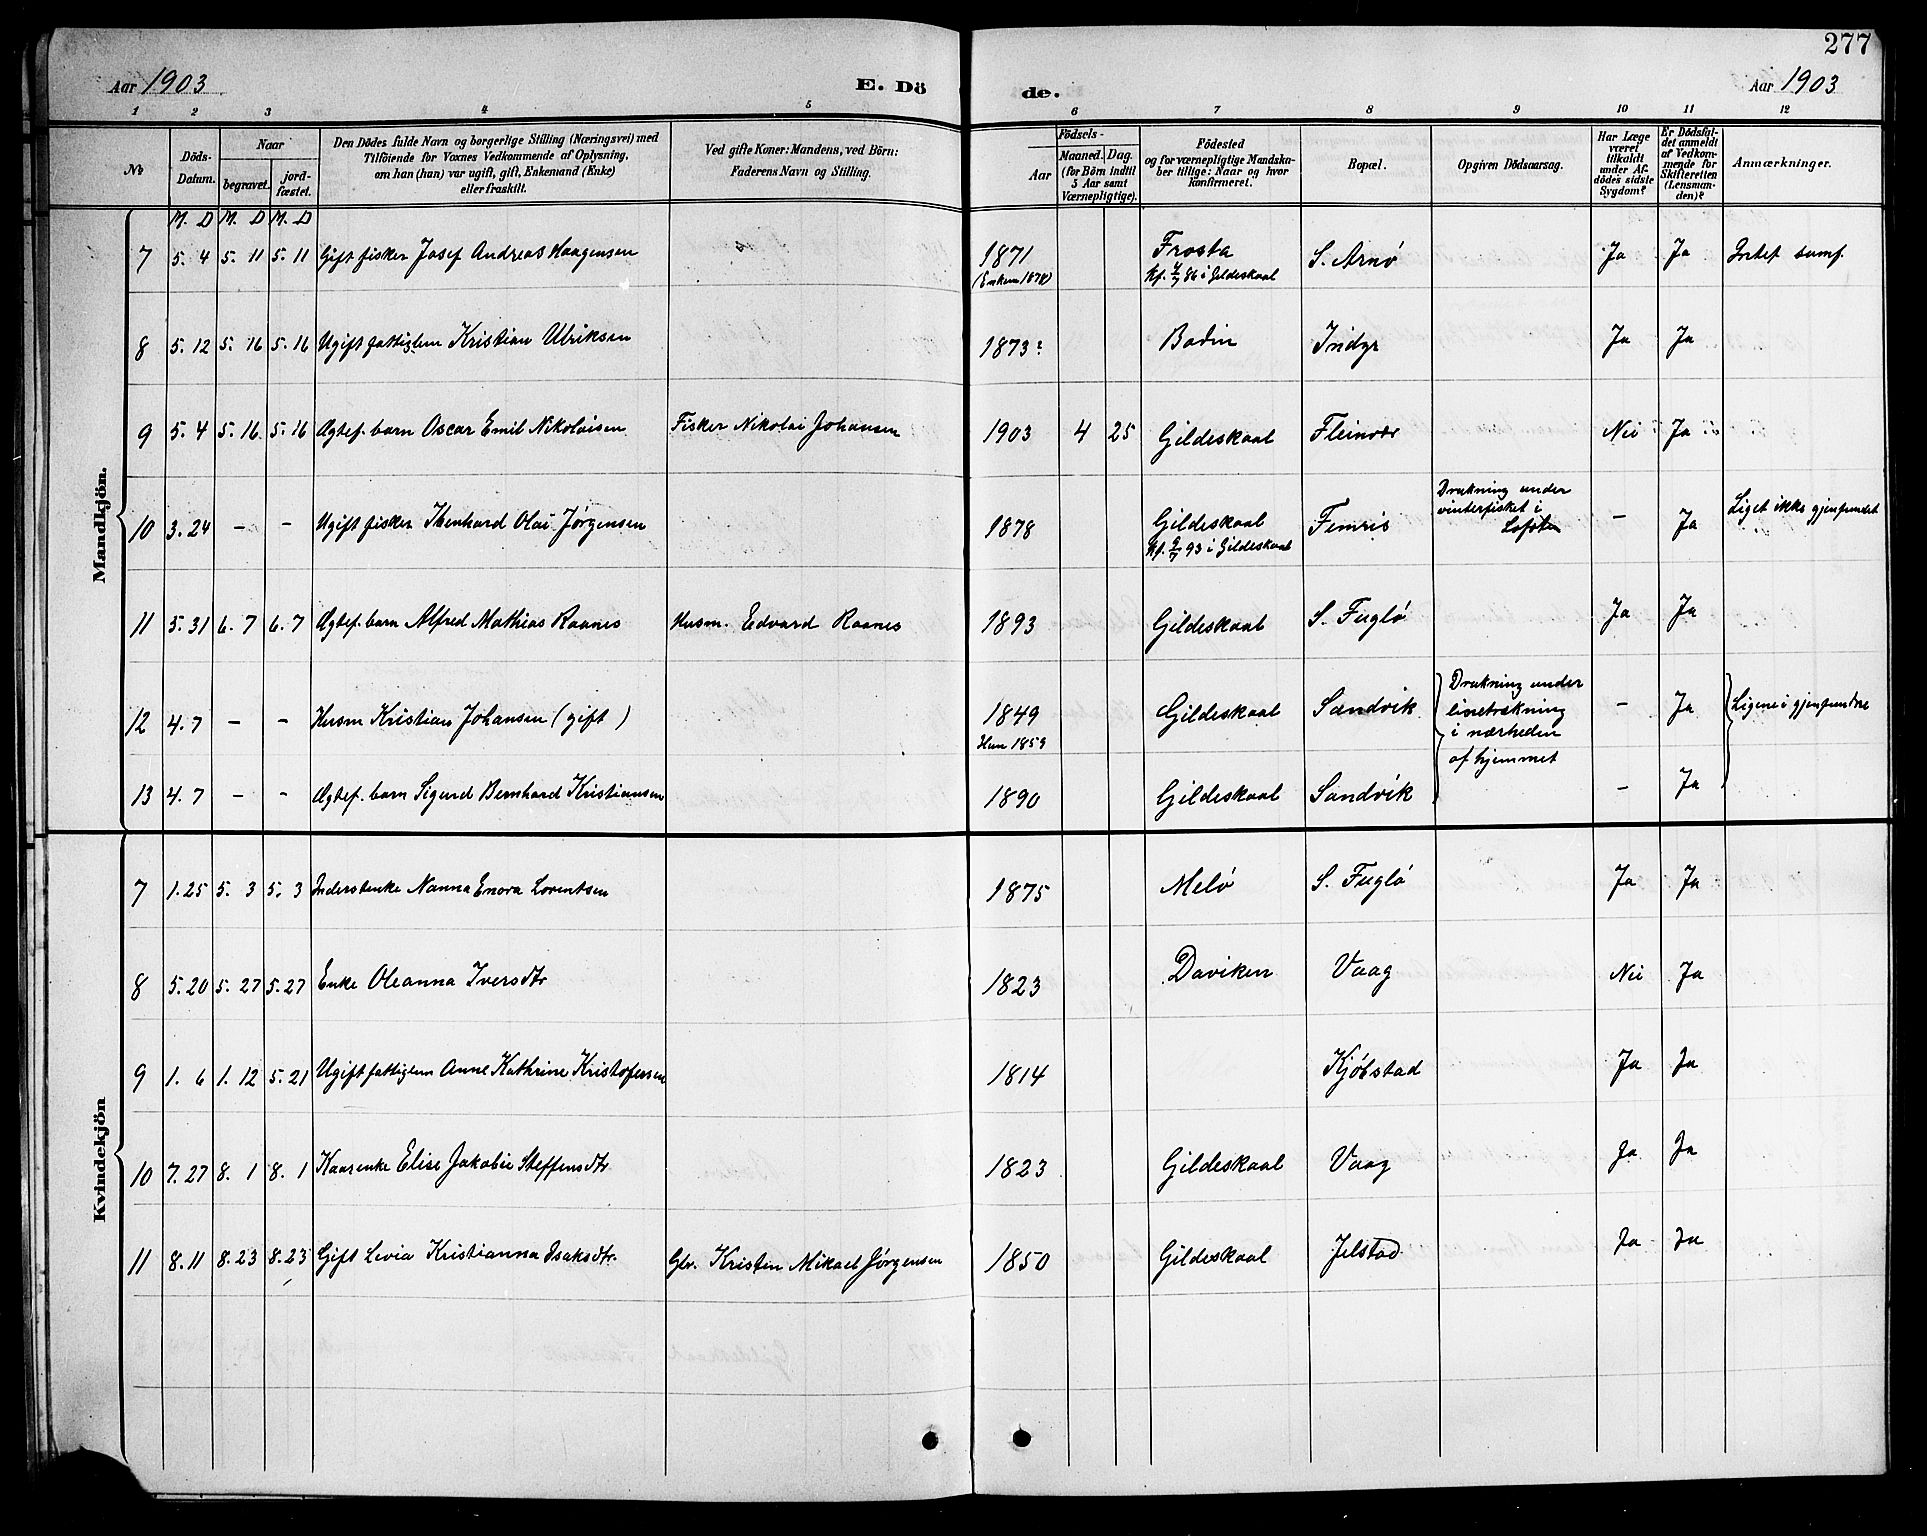 277
Aar 1903 E. Dö de. Aar 1903
1 2 3 4 5 6 7 8 9 10 11 12
No
Döds-Datum.
Naar
begravet. jordfæstet.
Den Dödes fulde Navn og borgerlige Stilling (Næringsvei) med
Tilföiende for Voxnes Vedkommende af Oplysning,
om han (hun) var ugift, gift, Enkemand (Enke)
eller fraskilt.
Ved gifte Koner: Mandens, ved Börn:
Faderens Navn og Stilling.
Födsels-
Aar Maaned. Dag.
(for Börn indtil
5 Aar samt
Værnepligtige).
Födested
og for værnepligtige Mandska-
ber tillige: Naar og hvor
konfirmeret.
Bopæl.
Opgiven Dödsaarsag.
Har Læge
været
tilkaldt
under Af-
dödes sidste
Sygdom?
Er Dödsfal-
det anmeldt
af Vedkom-
mende for
Skifteretten
(Lensman-
den)?
Anmærkninger.
M. D M. D M. D
Mandkjön.
7 5. 4 5. 11 5. 11 Gift fisker Josef Andreas Haagensen 1871 Frosta S. Arnö Ja Ja Intet samf.
(Enken 1878) Kf. 4/7 86 i Gildeskaal
8 5. 12 5. 16 5. 16 Ugift fattiglem Kristian Ulriksen 1873? Bodin Indyr Ja Ja
9 5. 4 5. 16 5. 16 Ægtef. barn Oscar Emil Nikolaisen Fisker Nikolai Johansen 1903 4 25 Gildeskaal Fleinvær Nei Ja
10 3. 24 - - Ugift fisker Ibenhard Olai Jørgensen 1878 Gildeskaal Femris Drukning under vinterfisket i Lofoten - Ja Liget ikke gjenfundet
Kf. 9/7 93 i Gildeskaal
11 5. 31 6. 7 6. 7 Ægtef. barn Alfred Mathias Raanes Husm. Edvard Raanes 1893 Gildeskaal S. Fuglö Ja Ja
12 4. 7 - - Husm Kristian Johansen (gift) 1849 Gildeskaal Sandvik Drukning under linetrækning i nærheden af hjemmet - Ja Ligene i gjenfundne
Hun 1859
13 4. 7 - - Ægtef. barn Sigurd Bernhard Kristiansen 1890 Gildeskaal Sandvik - Ja
Kvindekjön
7 1. 25 5. 3 5. 3 Inderstenke Nanna Enora Lorentsen 1875 Melö S. Fuglö Ja Ja
8 5. 20 5. 27 5. 27 Enke Oleanna Iversdtr 1823 Daviken Vaag Nei Ja
9 1. 6 1. 12 5. 21 Ugift fattiglem Anne Kathrine Kristofersen 1814 Kjöbstad Ja Ja
10 7. 27 8. 1 8. 1 Kaarenke Elise Jakobie Steffensdtr 1823 Gildeskaal Vaag Ja Ja
11 8. 11 8. 23 8. 23 Gift Levia Kristianna Isaksdtr. Gbr. Kristen Mikael Jørgensen 1850 Gildeskaal Jelstad Ja Ja